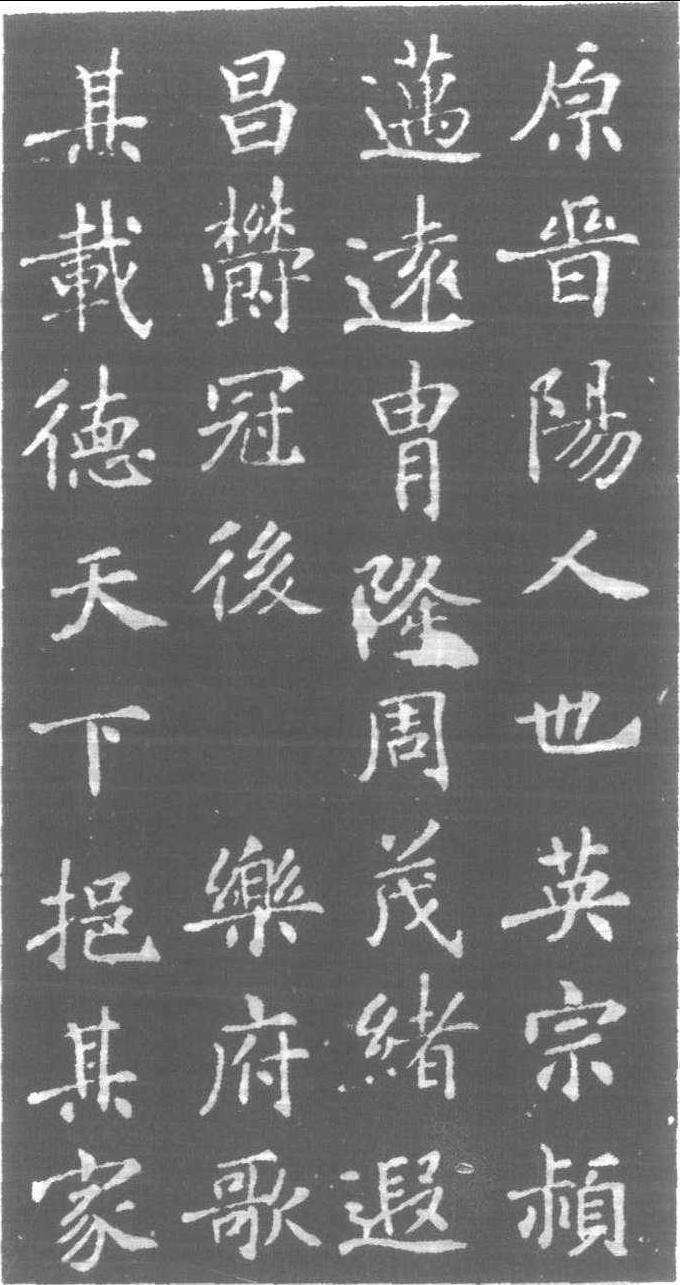 原晉陽人也英宗頴
邁遠胄隆周茂緒遐
昌欝冠後 樂府歌
其載徳天下挹其家